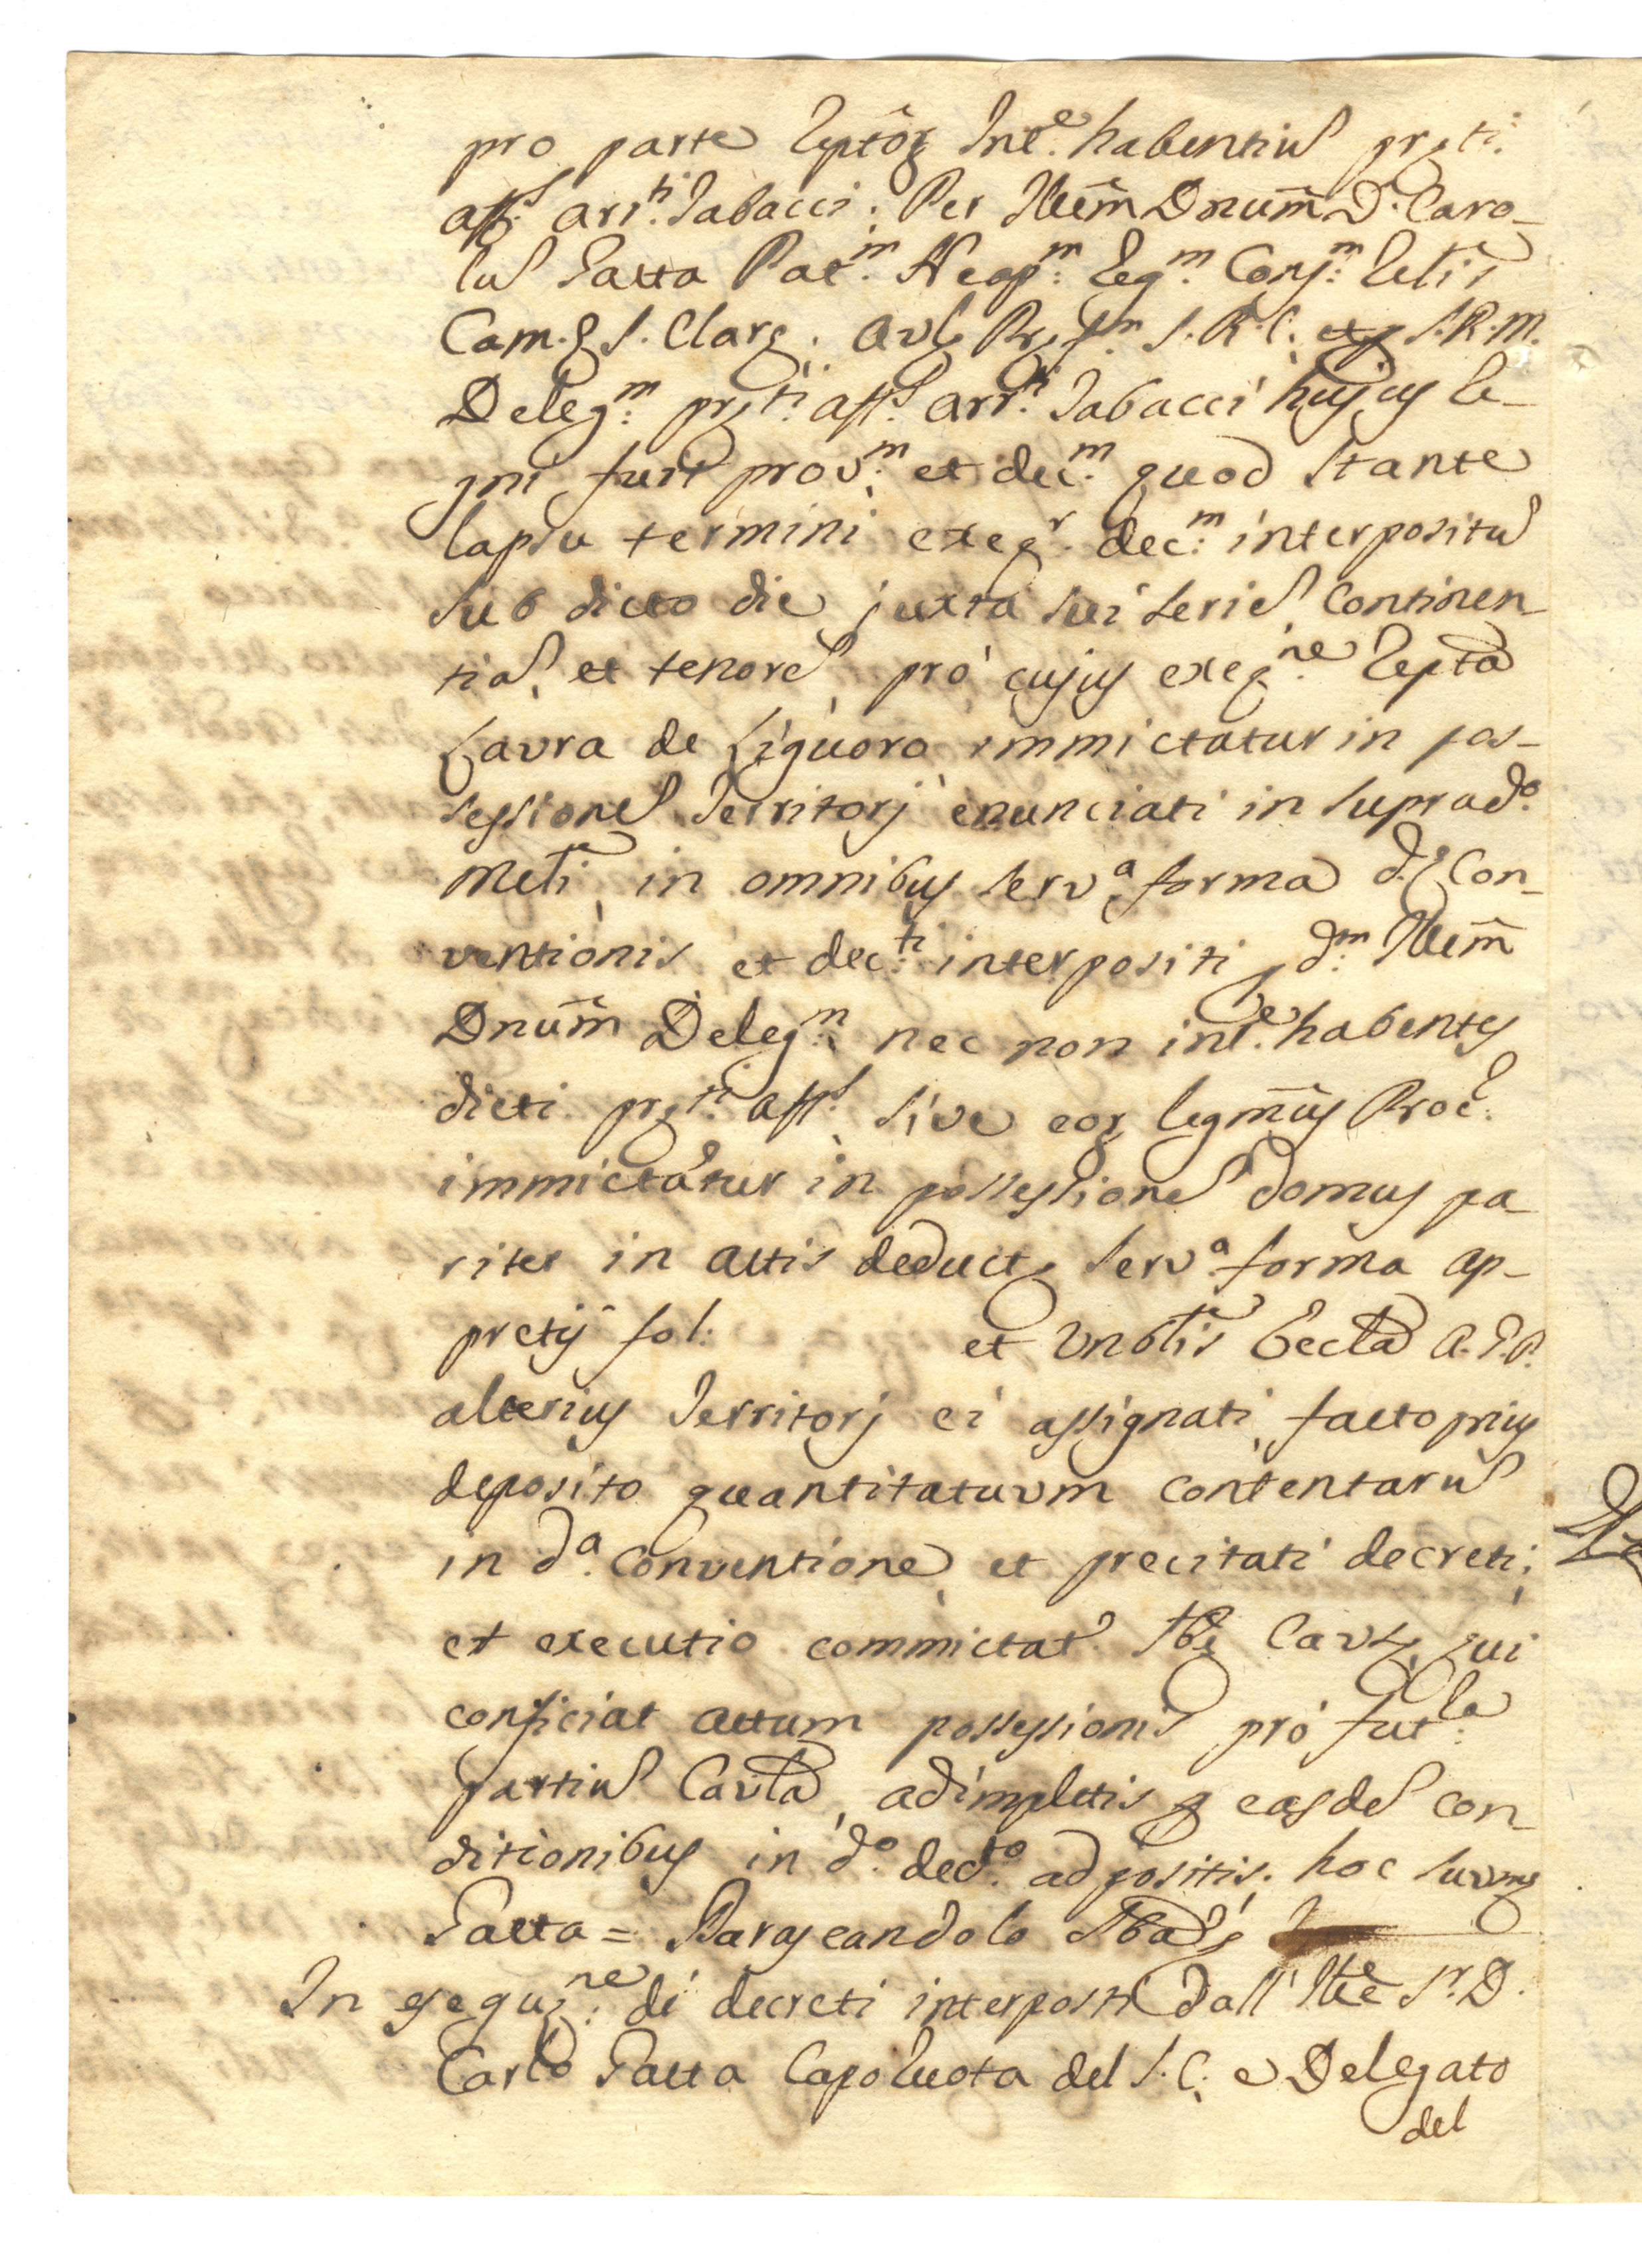 pro parte Inte. habentiu preti.
affs. arrti. Tabacci. Per Illm̃ Dnum̃ D. Caro-
lu Gaeta Patm. Neapm. Regm. Consm. 
Cam. S. Clare, S. R. C. S.R.M.
Delegm. preti. affs. arrti. Tabacci hujus Re-
gni fuit provm. et decm. quod stante
lapsu termini exeqr. decm. interpositu
sub dicto die juxta sui serie, continen-
tia, et tenore, pro cujus exeqne. Repta
Laura de Liguoro immictatur in pos-
sessione Territorj enunciati in suprado.
meti in omnibus serva. forma de. Con-
ventionis et decti. interpositi p dm. Illm̃
Dnum̃ Delegm. nec non inte. habentes
dicti preti. affs. sive eor legmũs Proc.
immictatur in possessione domus pa-
riter in actis deducte, serva. forma ap-
pretij fol: et A.S.P.
alterius Territorj ei assignati, facto prius
deposito quantitatuum contentaru
in da. conventione, et precitati decreti;
et executio commictat. qui
conficiat actum possessionis pro fut.la
partiu Cautla, adimpletis p easde con-
ditionibus in do. decto. adpositis. hoc suum
Gaeta = Parascandolo
In esequzne. di decreti interposti dall' Ille Sr. D.
Carlo Gaeta Capo Ruota del S.C. e Delegato
del